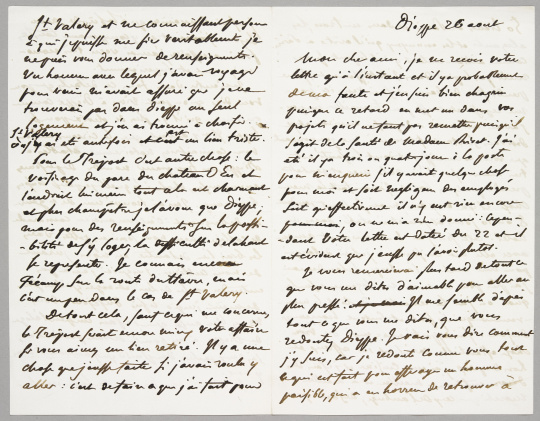 Dieppe 26 aout
Mon cher ami, je ne reçois votre
lettre qu'à l'instant et il y a probablement
de ma faute et j'en suis bien chagrin
puisque ce retard en met un dans vos
projets qu'il ne faut pas remettre puisqu'il
s'agit de la santé de madame Rivet. J'ai
été il y a trois ou quatre jours à la poste
pour m'enquérir s'il y avait quelque chose
pour moi et soit négligence des employés
soit qu'effectivement il n'y eut rien encore
pour moi, on ne m'a rien donné : cepen-
dant votre lettre est datée du 22 et il
est évident que j'eusse pu l'avoir plutot.
Je vous remercierai plus tard de tout ce
que vous me dites d'aimable pour aller au
plus pressé. Il me semble d'après
tout ce que vous me dites, que vous
redoutez Dieppe. Je vais vous dire comment
j'y suis, car je redoute comme vous, tout
ce qui est fait pour effrayer un homme
paisible, qui a en horreur de retrouver à
St Valery et ne connaissant personne
à qui je puisse me fier véritablement je
ne puis vous donner de renseignements.
Un homme avec lequel j'avais voyagé
pour venir m'avait assuré que je ne
trouverais pas dans Dieppe un seul
logement et j'en ai trouvé à choisir.
St Valery
où j'ai été autrefois est un lieu triste.
Pour le Tréport c'est autre chose : le
voisinage du parc du chateau d'Eu et
l'endroit lui même tout cela est charmant
et plus champêtre je l'avoue que Dieppe.
mais pour des renseignements sur la possi-
bilité de s'y loger, la difficulté de là haut
se représente. Je connais encore
Fécamp sur la route du Havre, mais
c'est un peu dans le cas de St Valery.
De tout cela, sauf ce qui me concerne
le Tréport serait encore mieux votre affaire
si vous aimez un lieu retiré. Il y a une
chose que j'eusse faite si j'avais voulu y
aller : c'est de faire ce que j'ai fait pour